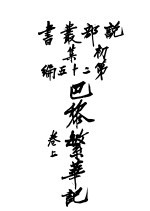 說部叢書
初集
第二十五編
巴黎繁華記
卷上